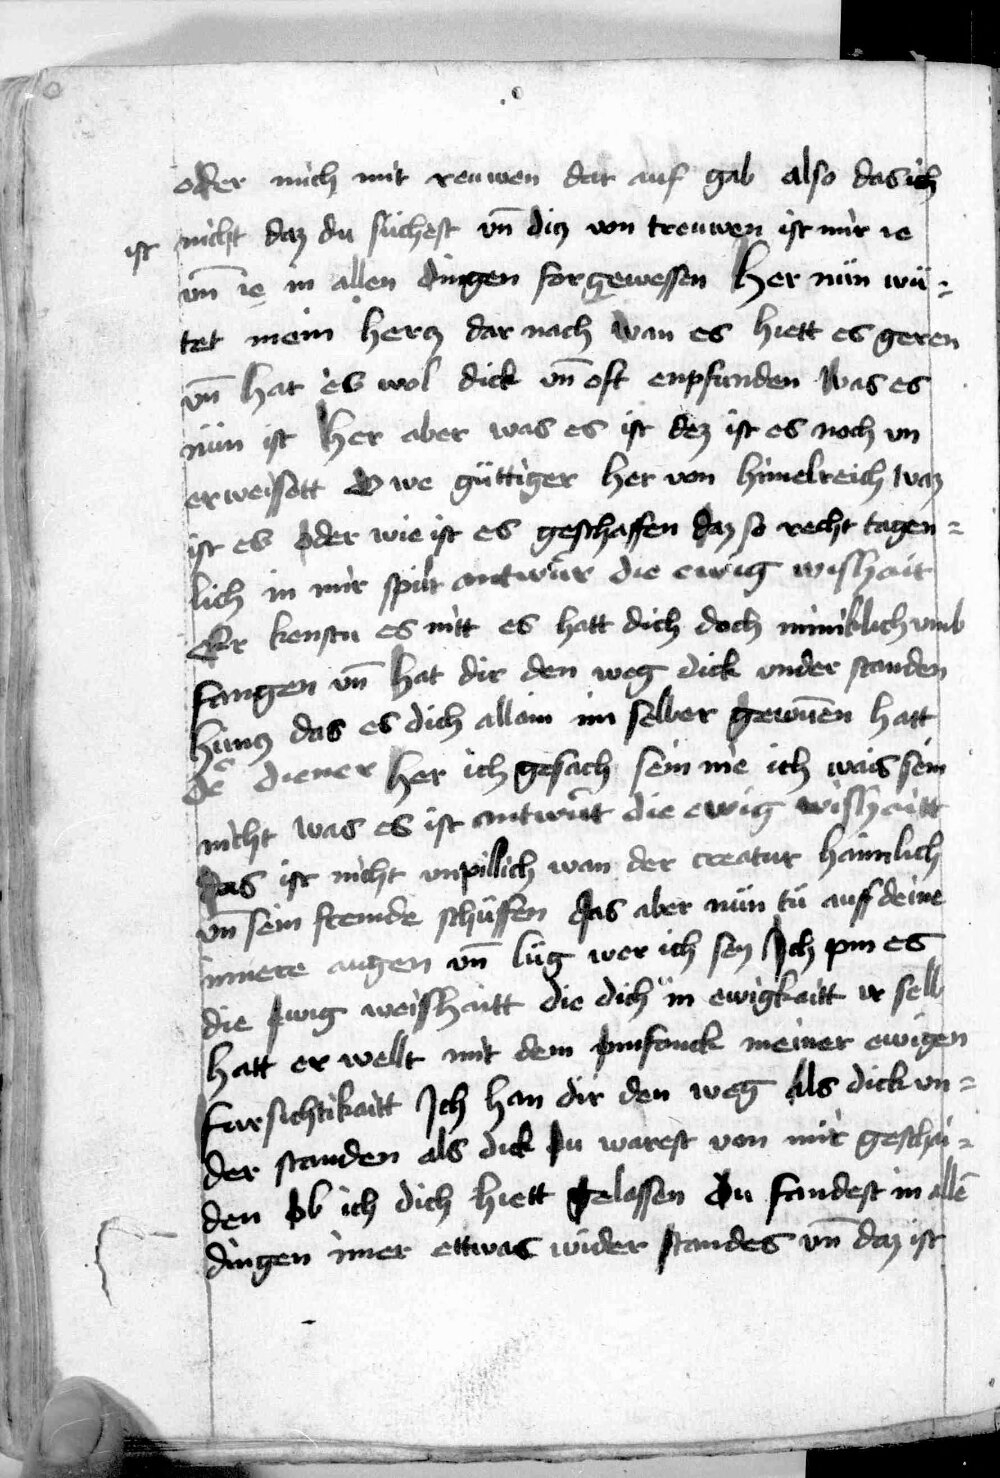 oder mich mit reuwen dar auf gab also das ich
ist nicht daz du suchest vn̄ diz von treuwen ist mir ie
vn̄ ie in allen dingen for gewessen Her nün wü=
tet mein hercz dar nach wan es hiett es geren
vn̄ hat es wol dick vn̄ oft enpfunden Was es
nün ist Her aber was es ist dez ist es noch vn
erweissett O we güttiger her von himelreich Waz
ist es oder wie ist es geschaffen daz so recht tagen=
lich in mir spilt antwürt die ewig wishait
Er kenstu es nitt es hatt dich doch miniklich vmb
fangen vn̄ hat dir den weg dick vnder standen
hüncz das es dich allain im selber gewūnen hatt
De diener Her ich gesach sein nie ich wais sein
nicht was es ist antwürt die ewig wishaitt
Das ist nicht vnpillich wan der creatur haimlich
vn̄ sein fremde schüffen das aber nün tü auff deine
innere augen vn̄ lüg wer ich sey Ich pin es
die ewig weisshaitt die dich in ewigkaitt ir selb
hatt er wellt mit dem pmfanck meiner ewigen
fursichtikaitt Ich han dir den weg als dick vn=
der standen als dick Du warest von mir geschai=
den ob ich dich hiett gelassen Du fandest in allē
dingen imer ettwas wider standes vn̄ daz ist